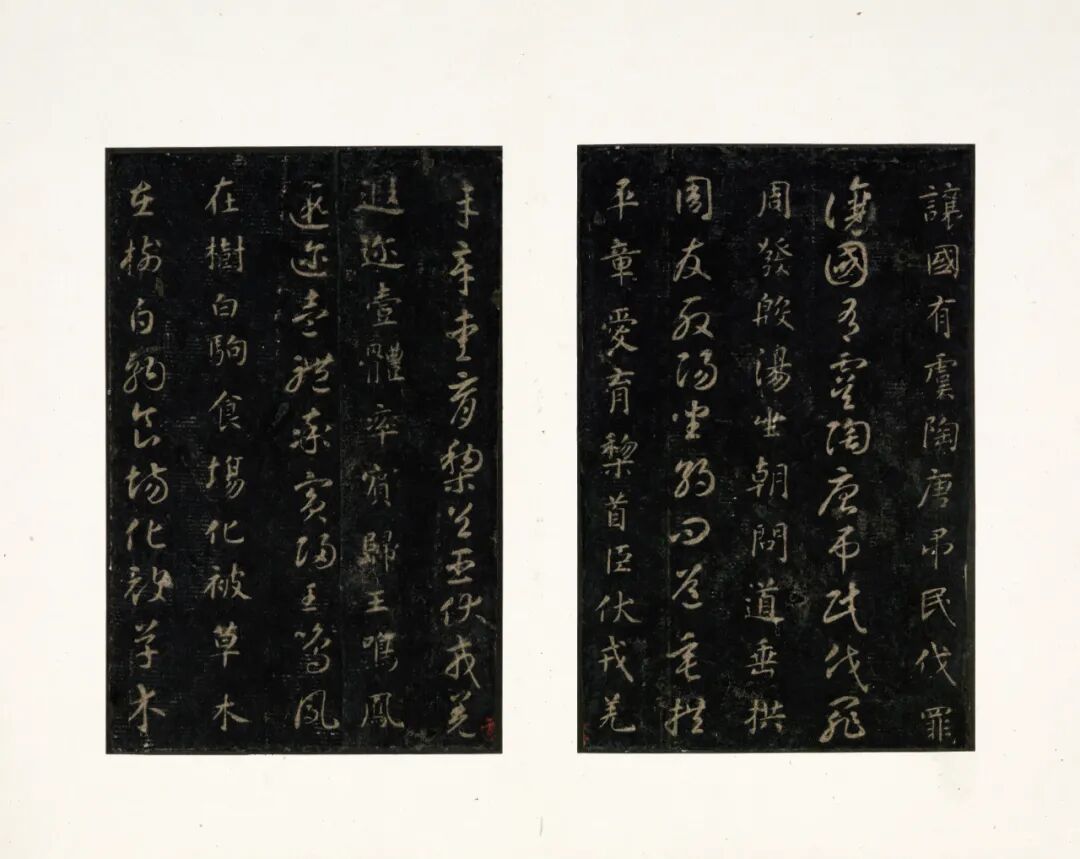 讓國有虞陶唐吊民伐罪
讓國有虞陶唐吊民伐罪
周發殷湯坐朝問道垂拱
周發殷湯坐朝問道垂拱
平章愛育黎首臣伏戎羌
平章愛育黎首臣伏戎羌
遐迩壹體率賓歸王鳴鳳
遐迩壹體率賓歸王鳴鳳
在樹白駒食場化被草木
在樹白駒食場化被草木